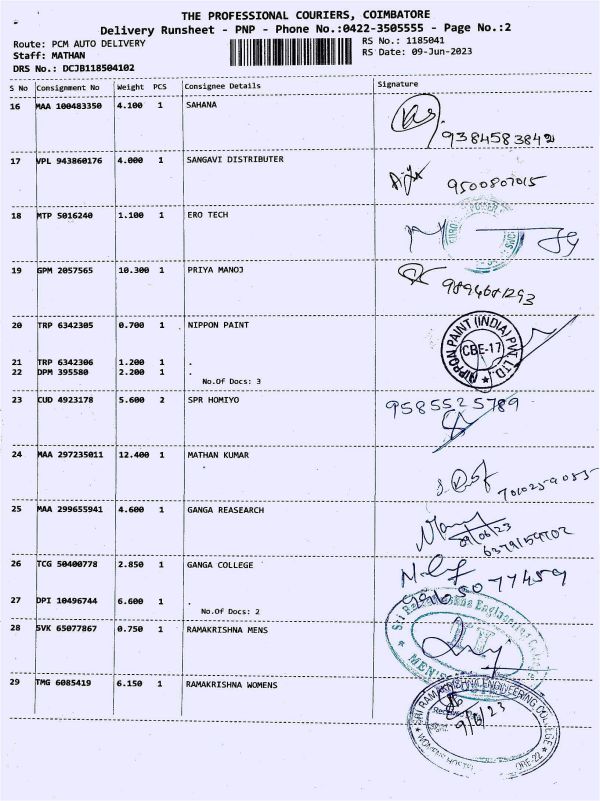 THE PROFESSIONAL COURIERS, COIMBATORE
Delivery Runsheet - PNP - Phone No.:0422-3505555 - Page No.:2
Route: PCM AUTO DELIVERY
RS No.: 1185041
Staff: MATHAN
RS Date: 09-Jun-2023
DRS No.: DCJB118504102
S No Consignment No Weight PCS Consignee Details Signature
16 MAA 100483350 4.100 1 SAHANA
9384583842
17 VPL 943860176 4.000 1 SANGAVI DISTRIBUTER
9500807015
18 MTP 5016240 1.100 1 ERO TECH
19 GPM 2057565 10.300 1 PRIYA MANOJ
9894681293
20 TRP 6342305 0.700 1 NIPPON PAINT
NIPPON PAINT (INDIA) PVT. LTD.
CBE-17
21 TRP 6342306 1.200 1 .
22 DPM 395580 2.200 1 .
No.Of Docs: 3
23 CUD 4923178 5.600 2 SPR HOMIYO
9585525789
24 MAA 297235011 12.400 1 MATHAN KUMAR
7010259055
25 MAA 299655941 4.600 1 GANGA REASEARCH
09/06/23
6379159702
26 TCG 50400778 2.850 1 GANGA COLLEGE
27 DPI 10496744 6.600 1 .
No.Of Docs: 2
28 SVK 65077867 0.750 1 RAMAKRISHNA MENS
Sri Ramakrishna Engineering College
MEN'S
29 TMG 6085419 6.150 1 RAMAKRISHNA WOMENS
SRI RAMAKRISHNA ENGINEERING COLLEGE
9/6/23